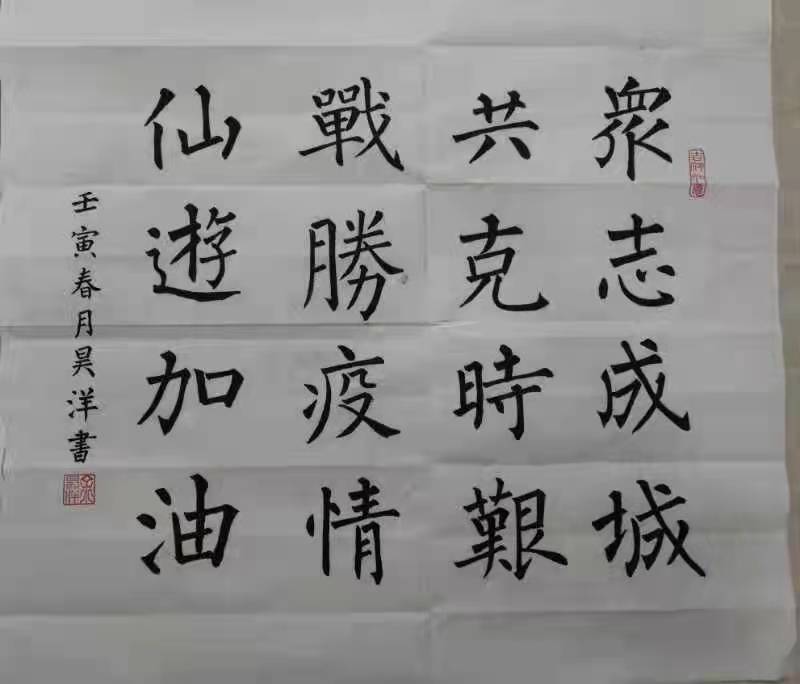 眾志成城
共克時艱
戰勝疫情
仙遊加油
壬寅春月昊洋書